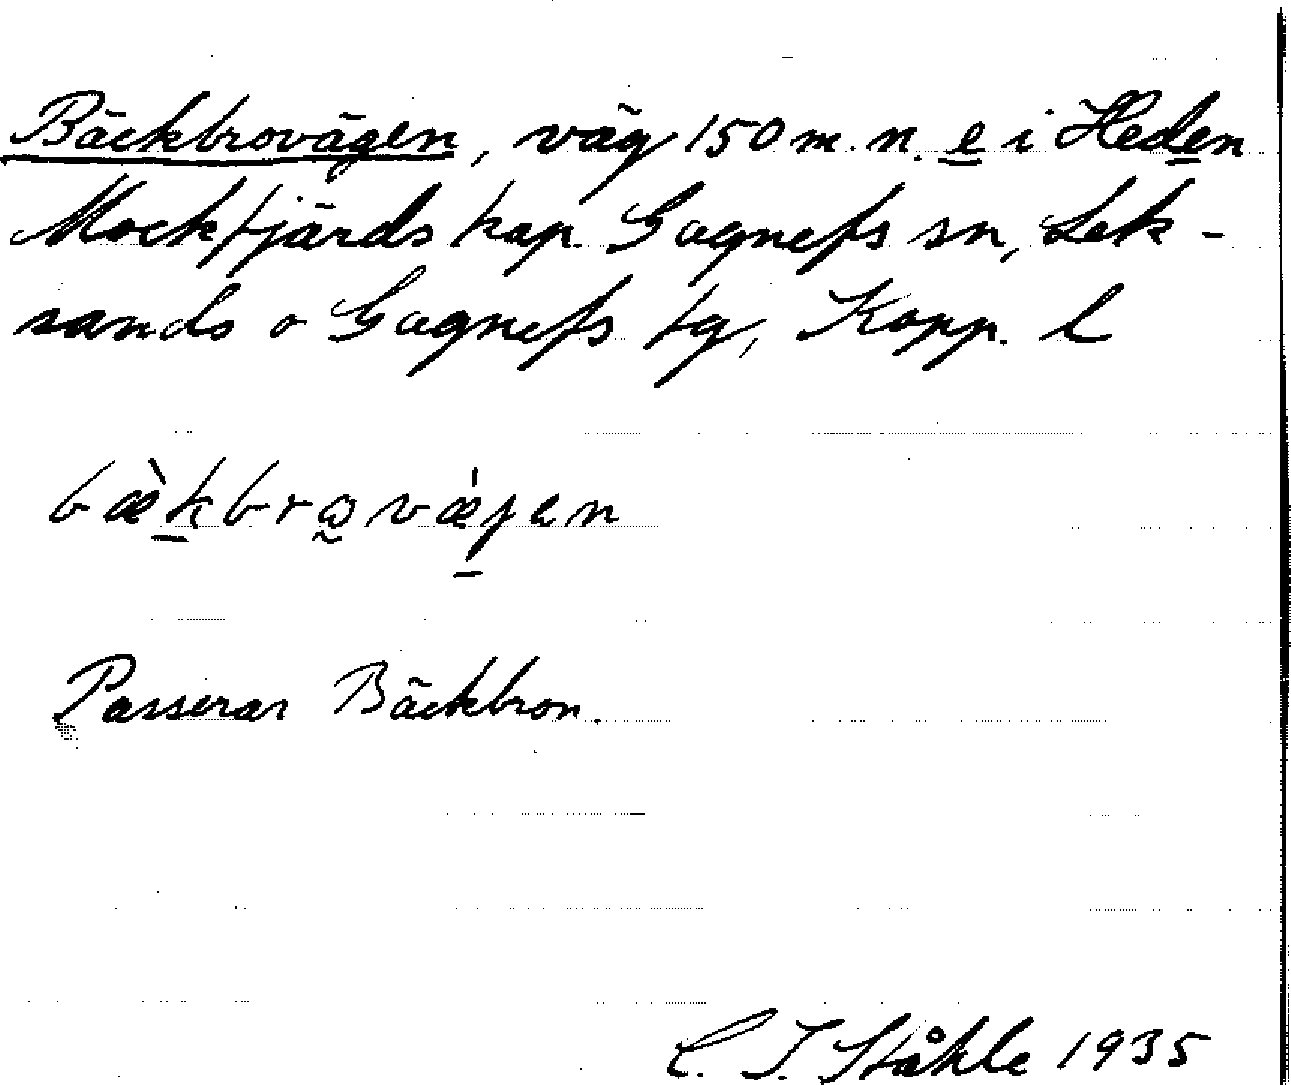 Bäckbrovägen, väg 150 m. n. e i Heden
Mockfjärds kap. Gagnefs sn, Lek-
sands o Gagnefs tg, Kopp. l
bæ̀kbrωvǽjen
Passerar Bäckbron.
C. I. Ståhle 1935